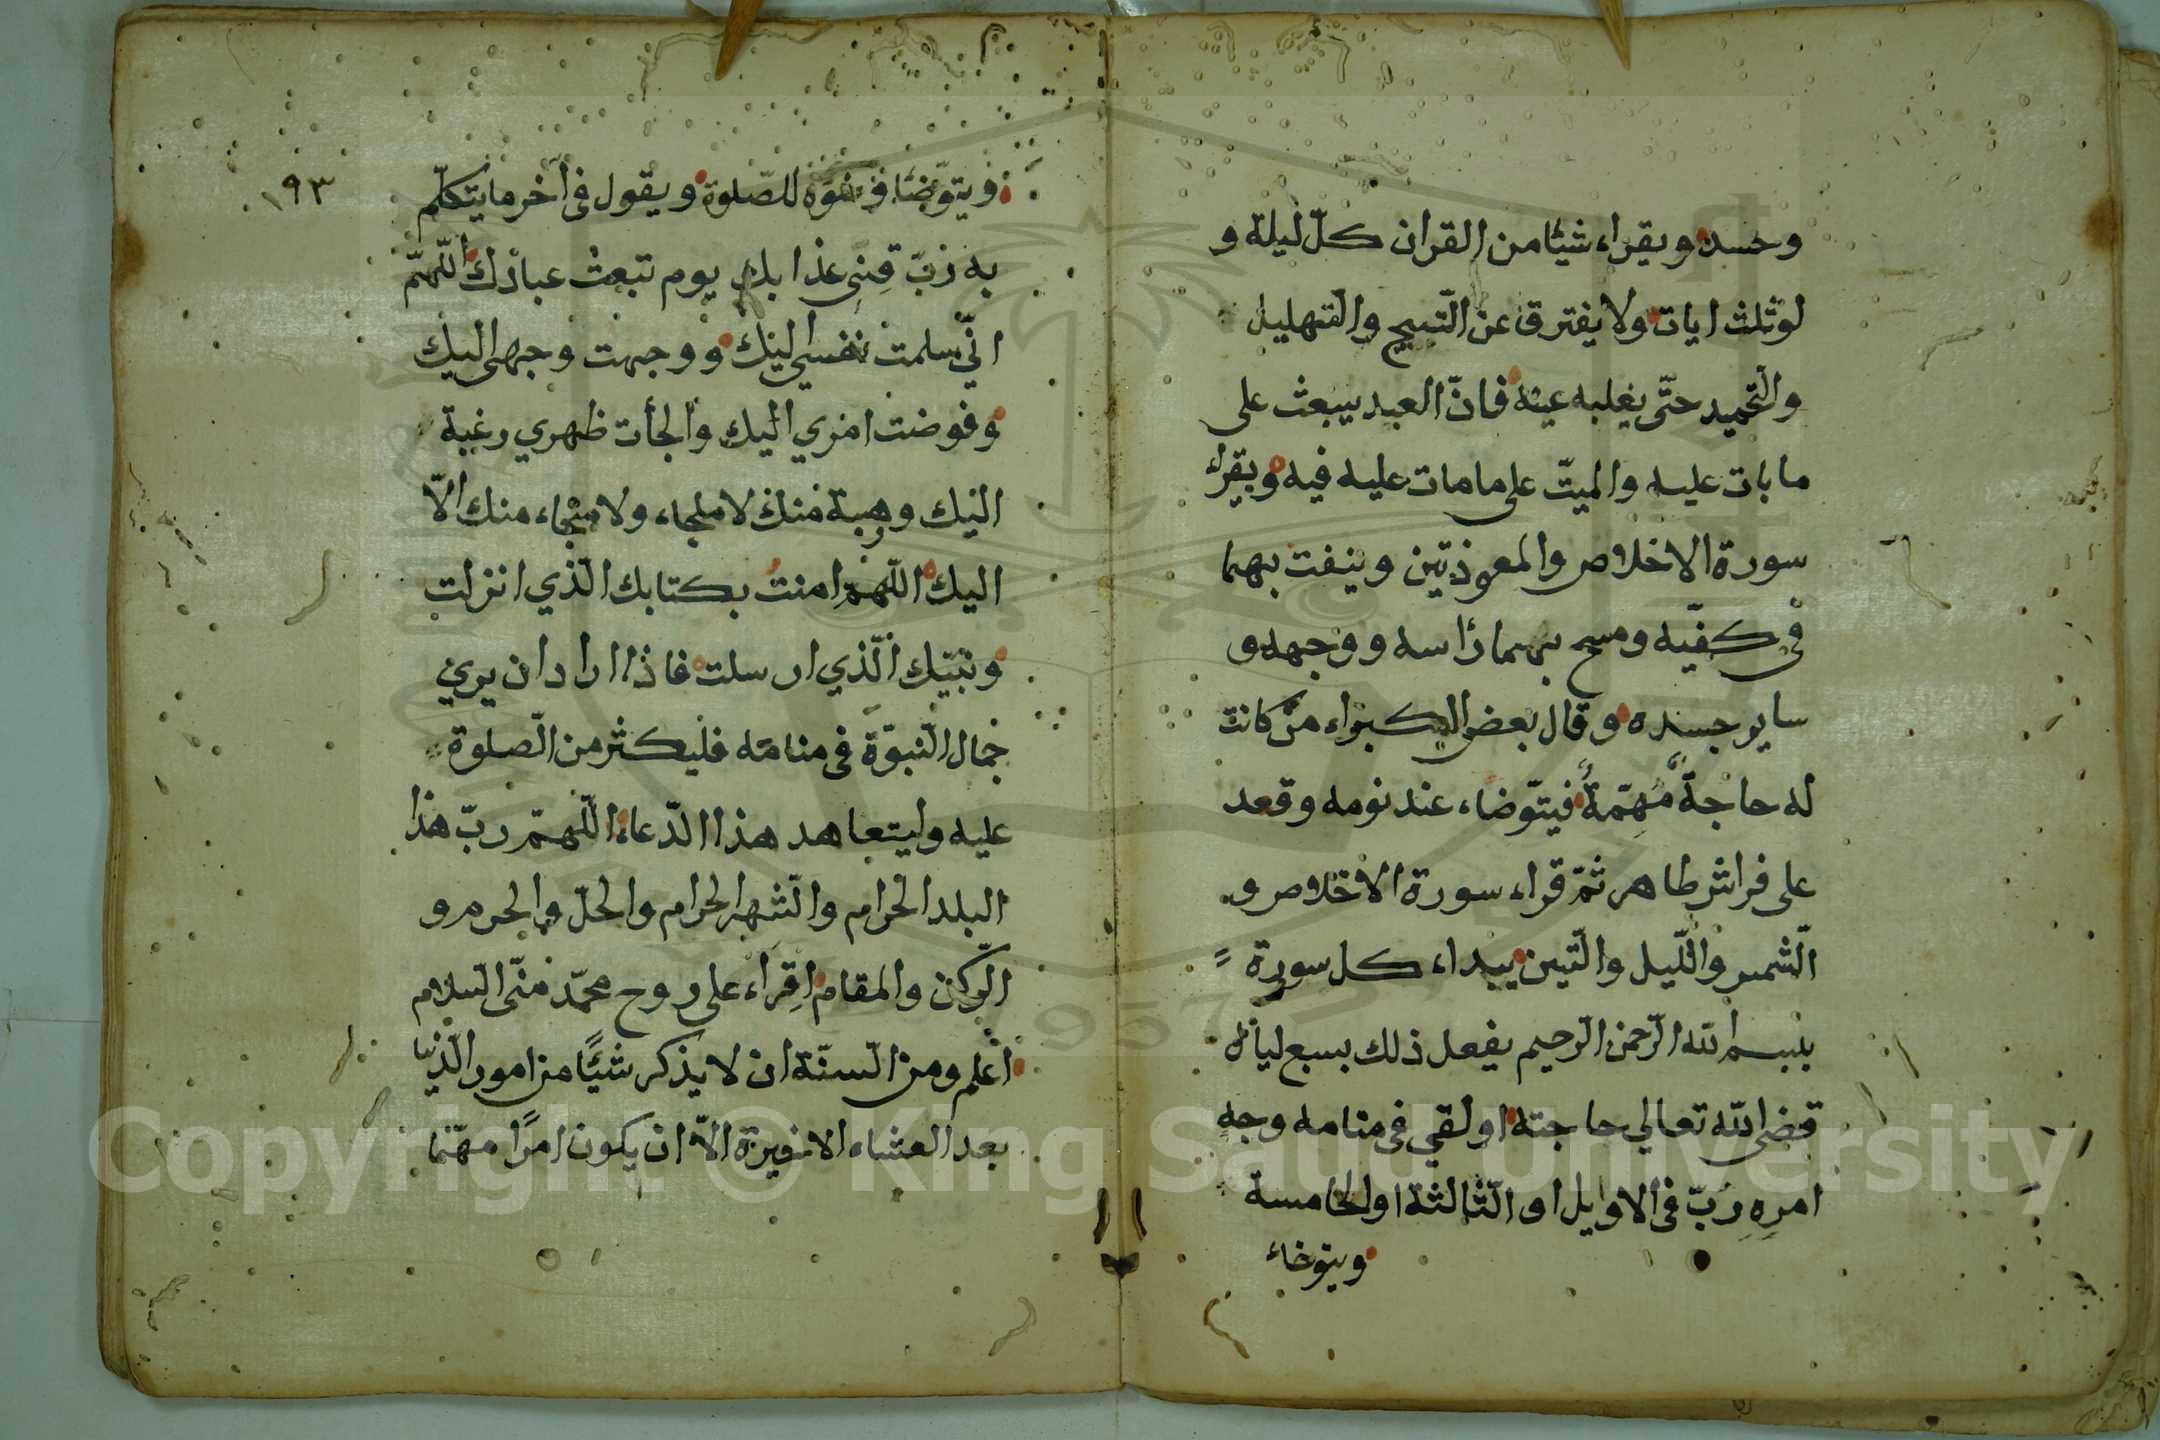 وحسده ويقراء شيئا من القران كلّ ليلة و
لوثلث ايات ولا يفترق عن التّسبيح والتّهليل
والتّحميد حتّى يغلبه عينه فانّ العبد يبعث على
ما بات عليه والميّت على ما مات عليه فيه ويقراء
سورة الاخلاص والمعوذتين وينفت بهما
فى كفّيه ومسح بهما رأسه ووجهه و
ساير جسده وقال بعض الكبراء من كانت
له حاجةٌ مُهِمّةٌ فيتوّضاء عند نومه وقعد
على فراش طاهر ثمّ قراء سورة الاخلاص و
الشّمس واللّيل والتّين يبداء كل سورة
ببسم الله الرّحمن الرّحيم يفعل ذلك بسبع ليال
قضى الله تعالي حاجته او لقي فى منامه وجه
امرِهِ رُبّ فى الاوايل او الثّالثة او الخامسة
ويتوضاء
١٩٣
ويتوّضّا للصّلوة ويقول فى آخر ما يتكلّم
به ربّ قِنِى عذابك يوم تبعث عبادك اللّهمّ
انّي سلمت نفسي اليك ووجهت وجهى اليك
وفوضت امري اليك والجأت ظهري رغبة
اليك ورهبة منك لا ملجاء ولا منجاء منك الّا
اليك اللّهمّ امنتُ بكتابك الّذي انزلت
ونبيّك الّذي ارسلت فاذا اراد ان يرى
جمال النّبوّة فى منامه فليكثر من الصّلوة
عليه وليتعاهد هذا الدّعاء اللّهمّ ربّ هذا
البلد الحرام والشّهر الحرام والحلّ والحرم و
الرّكن والمقام اقِراء على روح محمّد منّى السّلام
اعلم ومن السنّة ان لا يذكر شيئًا من امور الدّنيا
بعد العشاء الاخيرة الّا ان يكون امرًا مهمّا
Copyright © King Saud University
1957